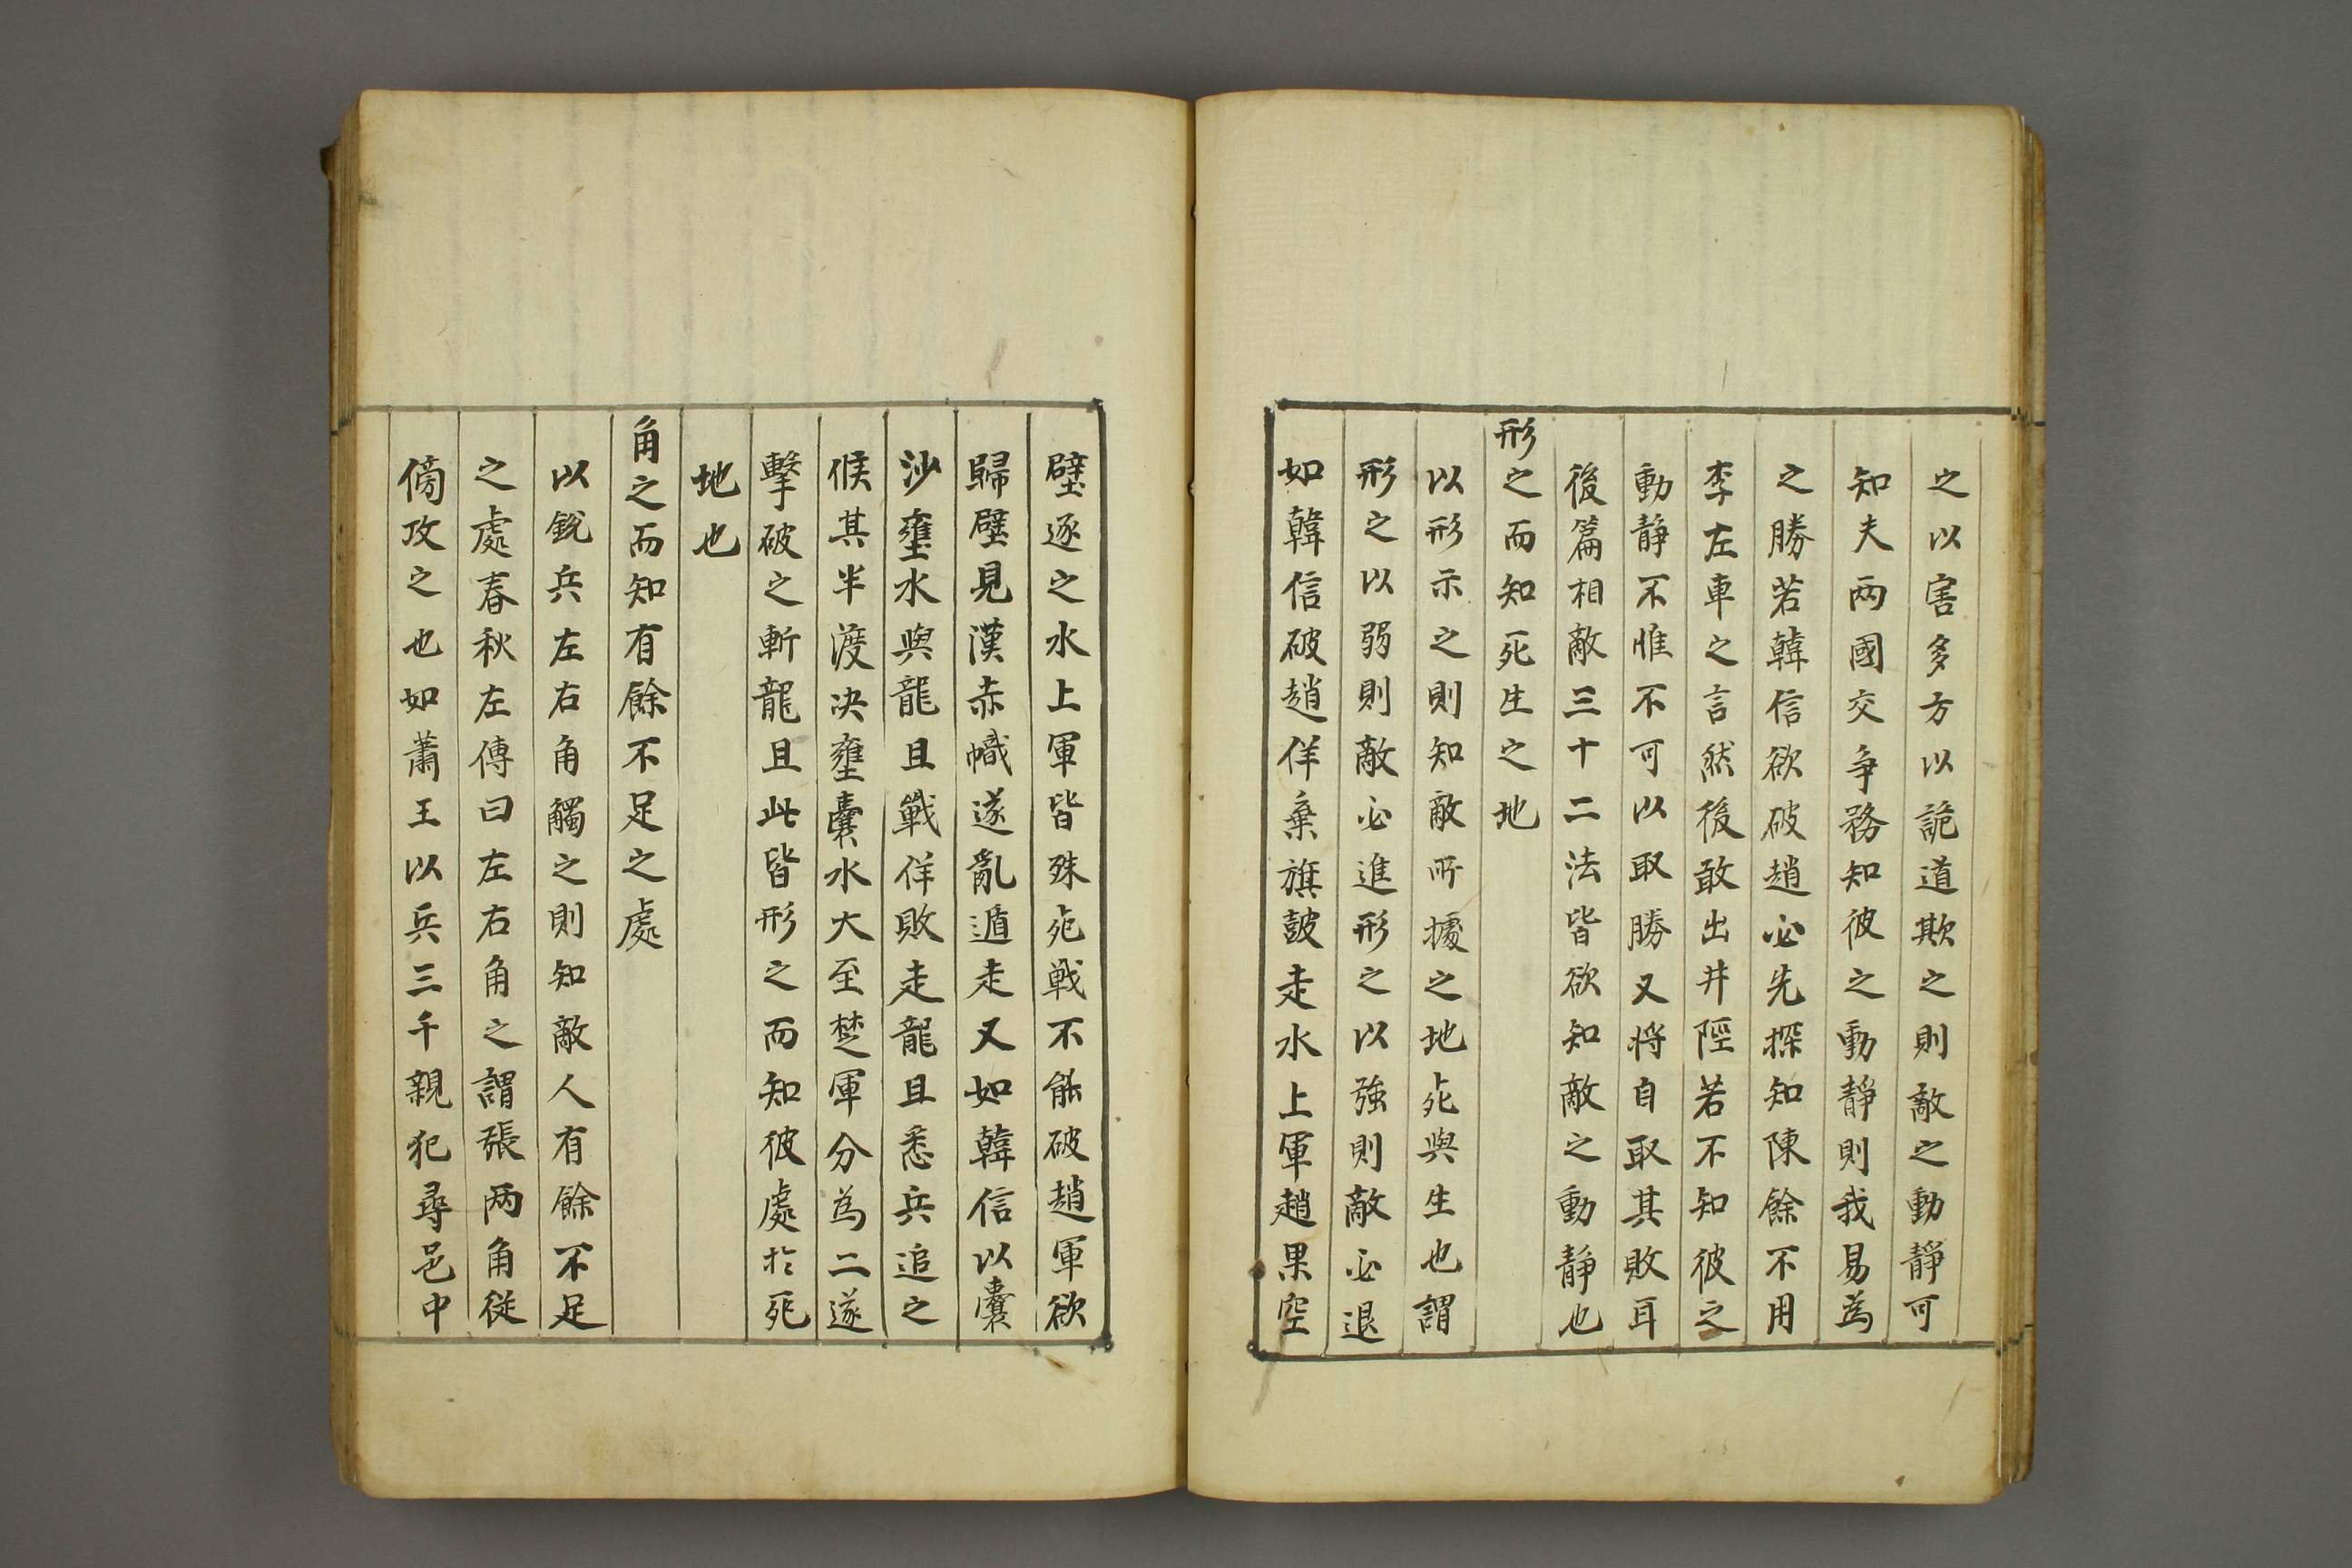 之以害多方以詭道欺之則敵之動靜可
知夫兩國交爭務知彼之動靜則我易為
之勝若韓信欲破趙必先探知陳餘不用
李左車之言然後敢出井陘若不知彼之
動靜不惟不可以取勝又将自取其敗耳
後篇相敵三十二法皆欲知敵之動靜也
形之而知死生之地
以形示之則知敵所據之地死與生也謂
形之以弱則敵必進形之以強則敵必退
如韓信破趙佯棄旗鼓走水上軍趙果空
壁逐之水上軍皆殊死戦不能破趙軍欲
歸壁見漢赤幟遂亂遁走又如韓信以囊
沙壅水與龍且戰佯敗走龍且悉兵追之
候其半渡决壅囊水大至楚軍分為二遂
擊破之斬龍且此皆形之而知彼處於死
地也
角之而知有餘不足之處
以銳兵左右角觸之則知敵人有餘不足
之處春秋左傳曰左右角之謂張两角從
傍攻之也如蕭王以兵三千親犯尋邑中